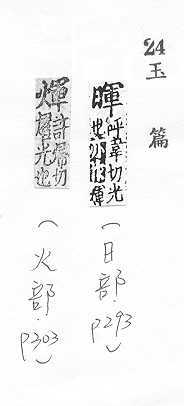 24玉篇
暉呼韋切光
也亦作
(日部.p293)
煇許切
光也
(火部.p303)